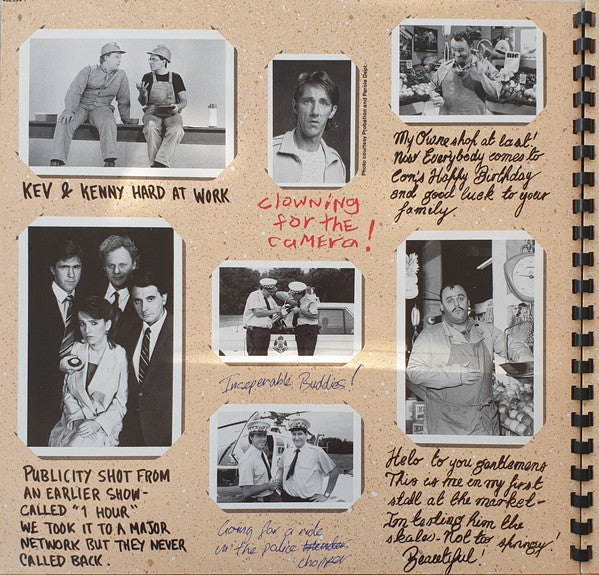 KEV & KENNY HARD AT WORK
Photo courtesy Probation and Parole Dept.
CLOWNING
FOR THE
CAMERA!
BIG
My Owne shop at last!
Now Everybody comes to
Con's Happy Birthday
and good luck to your
family
PUBLICITY SHOT FROM
AN EARLIER SHOW-
CALLED "1 HOUR"
WE TOOK IT TO A MAJOR
NETWORK BUT THEY NEVER
CALLED BACK.
Inseperable Buddies!
Going for a ride
in the police
chopper
Helo to you gentlemens
This is me in my first
stall at the market-
Im testing him the
skales- Not to springy!
Beautiful!